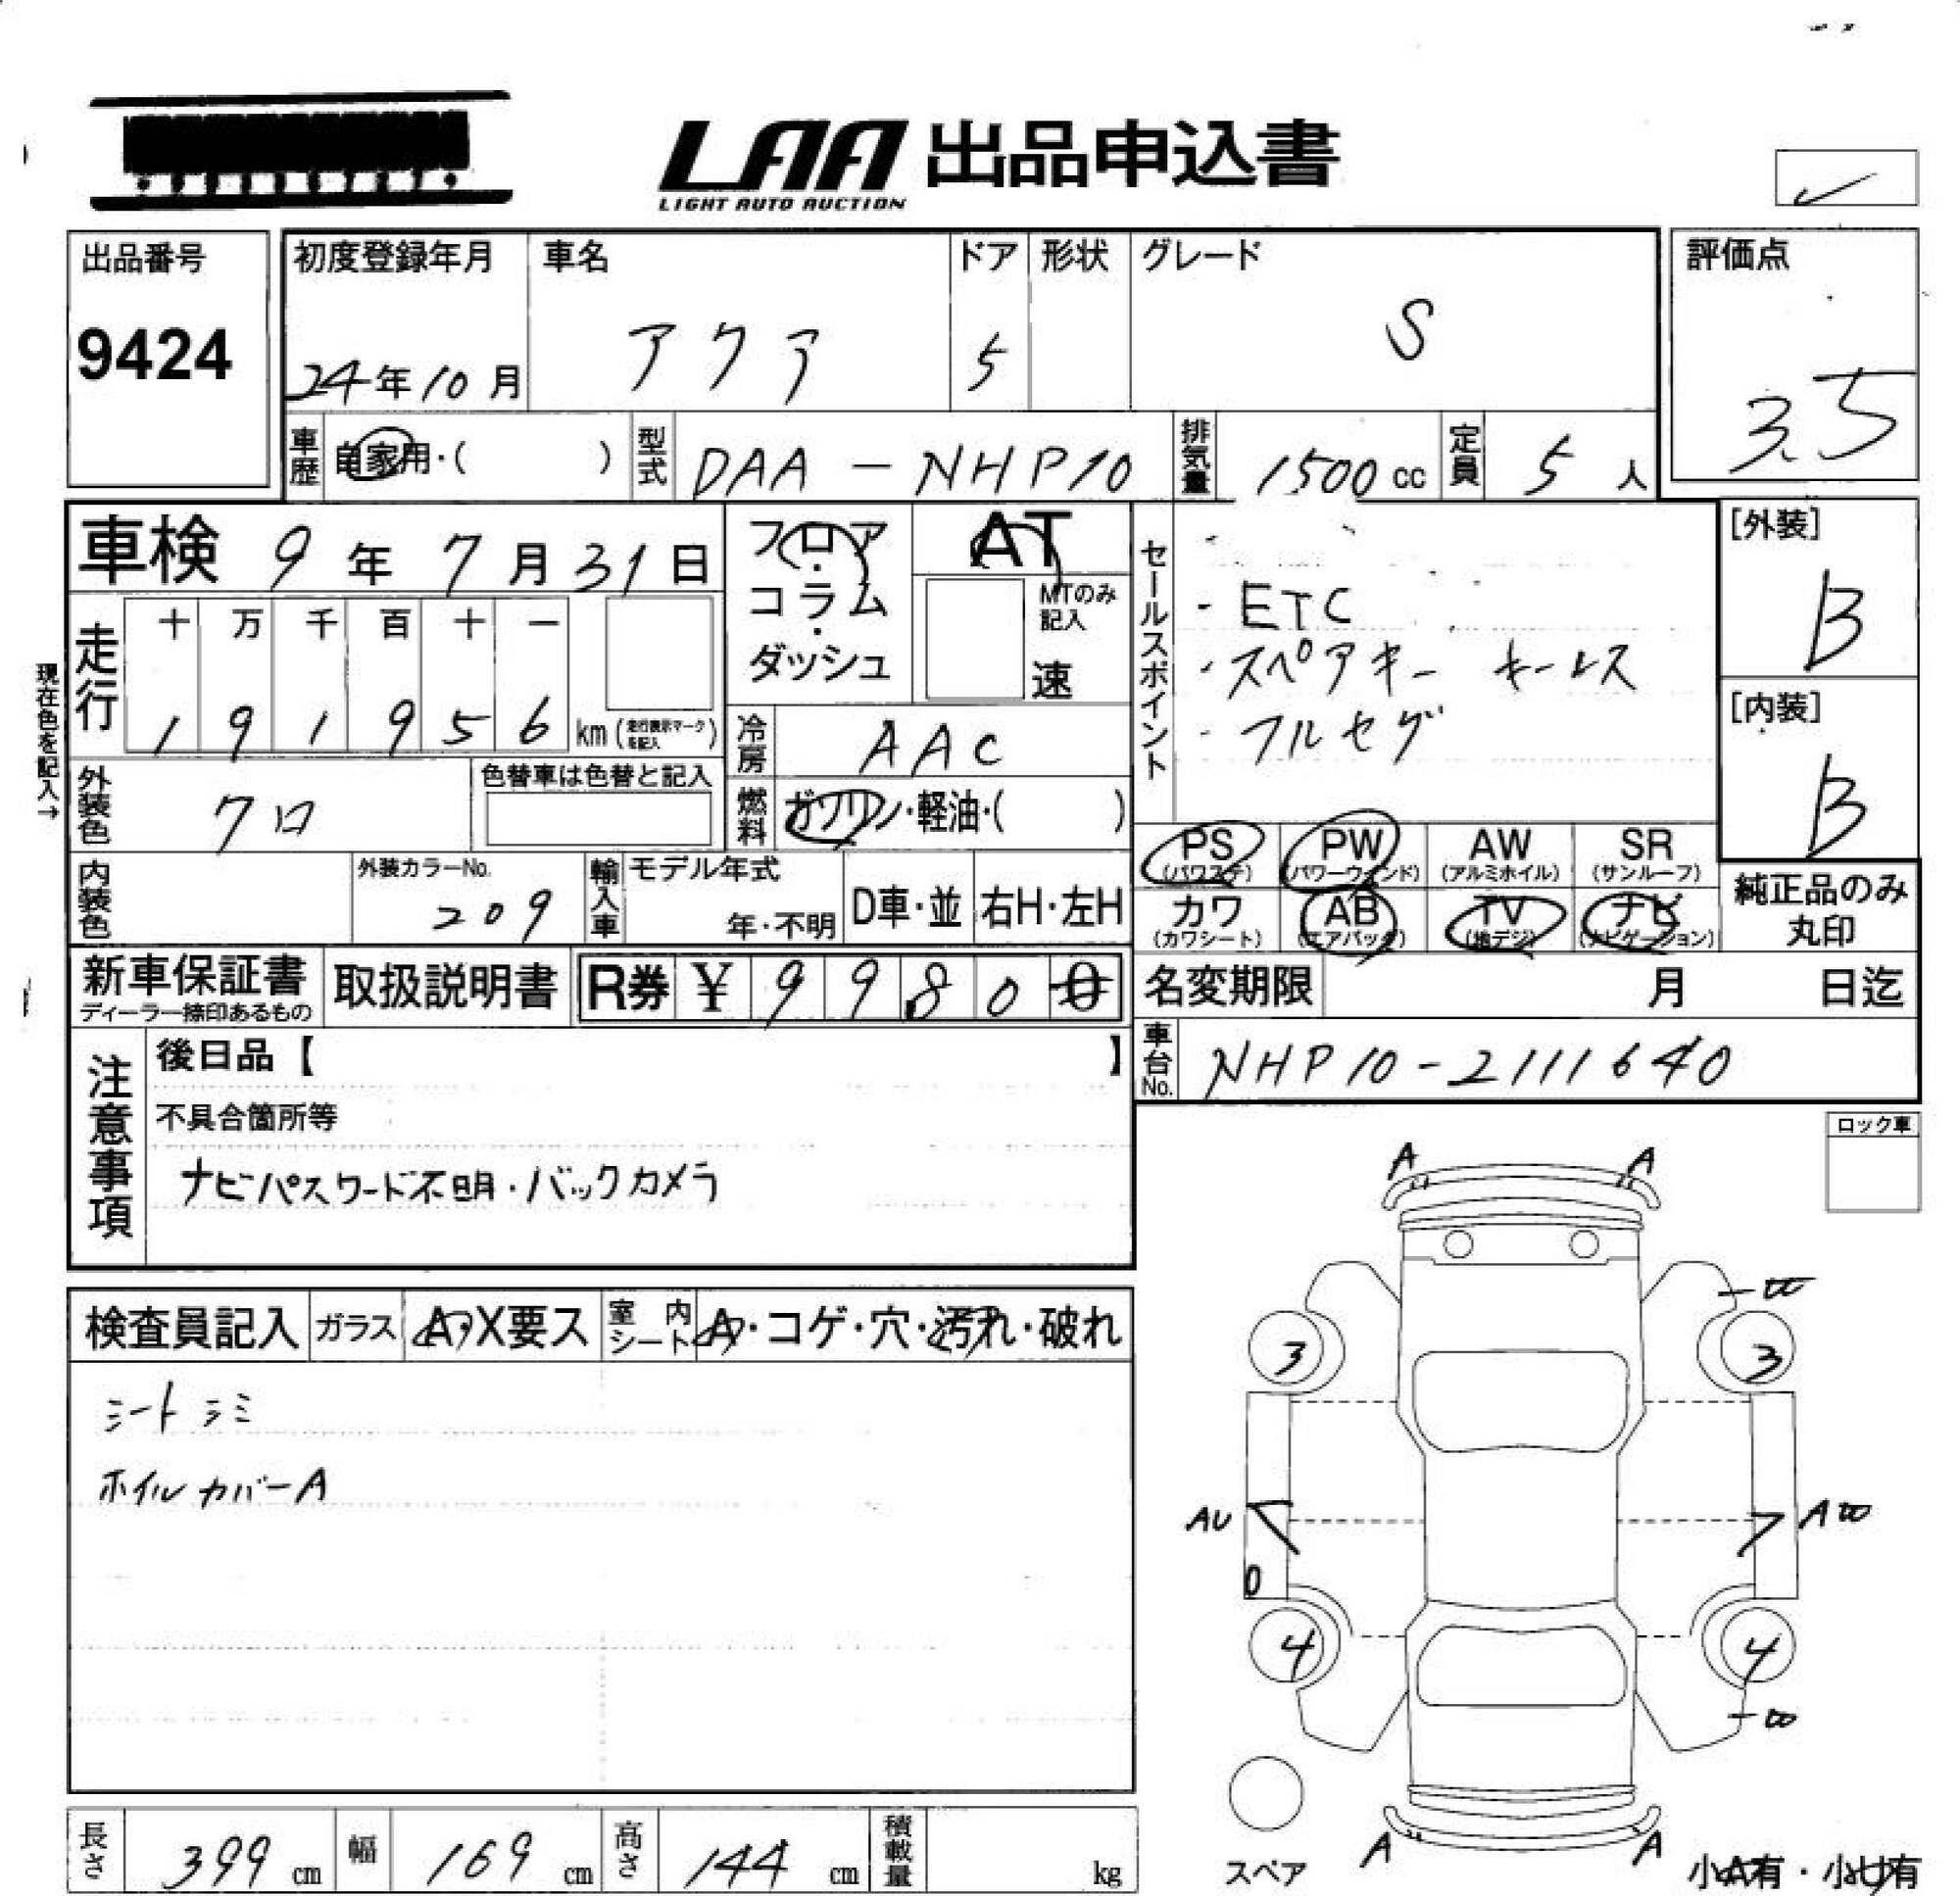 LAA 出品申込書
LIGHT AUTO AUCTION
出品番号
9424
初度登録年月 車名 ドア 形状 グレード 評価点
24年10月 アクア 5 S 3.5
車歴 自家用・( ) 型式 DAA-NHP10 排気量 1500cc 定員 5人
車検 9年7月31日
フロア・コラム・ダッシュ
AT
MTのみ記入
速
セールスポイント
・ETC
・スペアキー キーレス
・フルセグ
[外装]
B
[内装]
B
現在色を記入→
走行 十 万 千 百 十 一
1 9 1 9 5 6 km(走行表示マークを記入)
冷房 AAC
外装色 クロ 色替車は色替と記入
燃料 ガソリン・軽油・( )
PS (パワステ) PW (パワーウィンド) AW (アルミホイル) SR (サンルーフ)
カワ (カワシート) AB (エアバック) TV (地デジ) ナビ (ナビゲーション)
純正品のみ丸印
内装色 外装カラーNo. 209 輸入車 モデル年式 年・不明 D車・並 右H・左H
新車保証書 ディーラー捺印あるもの 取扱説明書 R券 ¥ 9 9 8 0
名変期限 月 日迄
車台No. NHP10-2111640
注意事項
後日品【 】
不具合箇所等
ナビパスワード不明・バックカメラ
ロック車
検査員記入 ガラス A・X要ス 室内シート A・コゲ・穴・汚れ・破れ
シートシミ
ホイルカバーA
A A
3 3
AU
A
4 4
A A
スペア
小A有・小U有
長さ 399cm 幅 169cm 高さ 144cm 積載量 kg